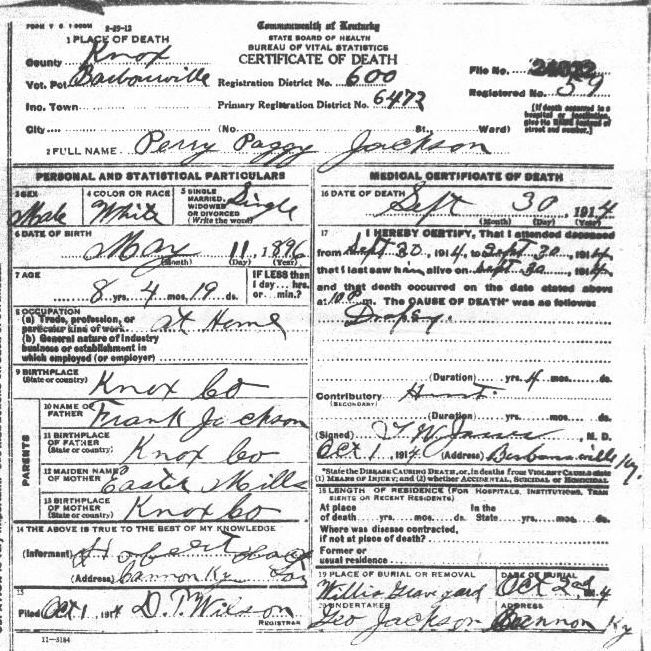 FORM V. S. 1-500M 2-29-12
Commonwealth of Kentucky
STATE BOARD OF HEALTH
BUREAU OF VITAL STATISTICS
CERTIFICATE OF DEATH
1 PLACE OF DEATH
County Knox
Vot. Pct Barbourville
Inc. Town
City (No. St., Ward)
Registration District No. 600
Primary Registration District No. 6472
File No.
Registered No. 59
[If death occurred in a hospital or institution, give its NAME instead of street and number.]
2 FULL NAME Perry Paggy Jackson
PERSONAL AND STATISTICAL PARTICULARS
3 SEX Male
4 COLOR OR RACE White
5 SINGLE MARRIED, WIDOWED OR DIVORCED (Write the word) Single
6 DATE OF BIRTH
May 11, 1896
(Month) (Day) (Year)
7 AGE
8 yrs. 4 mos. 19 ds.
IF LESS than 1 day... hrs. or... min.?
8 OCCUPATION
(a) Trade, profession, or particular kind of work at Home
(b) General nature of industry
business or establishment in
which employed (or employer)
9 BIRTHPLACE
(State or country) Knox Co
PARENTS
10 NAME OF FATHER Frank Jackson
11 BIRTHPLACE OF FATHER (State or country) Knox Co
12 MAIDEN NAME OF MOTHER Easter Mills
13 BIRTHPLACE OF MOTHER (State or country) Knox Co
14 THE ABOVE IS TRUE TO THE BEST OF MY KNOWLEDGE
(Informant) Hobert
(Address) Cannon Ky
15
Filed Oct 1, 1914 D. T. Wilson
REGISTRAR
11-5184
MEDICAL CERTIFICATE OF DEATH
16 DATE OF DEATH Sept 30, 1914
(Month) (Day) (Year)
17 I HEREBY CERTIFY, That I attended deceased
from Sept 30, 1914 to Sept 30, 1914
that I last saw him alive on Sept 30, 1914
and that death occurred on the date stated above
at 10 P m. The CAUSE OF DEATH* was as follows:
Dropsy
(Duration) yrs. 4 mos. ds.
Contributory
(SECONDARY)
(Duration) yrs. mos. ds.
(Signed) M. D.
Oct 1, 1914 (Address) Barbourville Ky.
*State the DISEASE CAUSING DEATH, or, in deaths from VIOLENT CAUSES state
(1) MEANS OF INJURY; and (2) whether ACCIDENTAL, SUICIDAL or HOMICIDAL
18 LENGTH OF RESIDENCE (FOR HOSPITALS, INSTITUTIONS, TRANSIENTS OR RECENT RESIDENTS)
At place of death yrs. mos. ds. In the State yrs. mos. ds.
Where was disease contracted,
if not at place of death?
Former or
usual residence
19 PLACE OF BURIAL OR REMOVAL Willis Graveyard
DATE OF BURIAL Oct 2nd, 1914
20 UNDERTAKER Geo Jackson
ADDRESS Cannon Ky